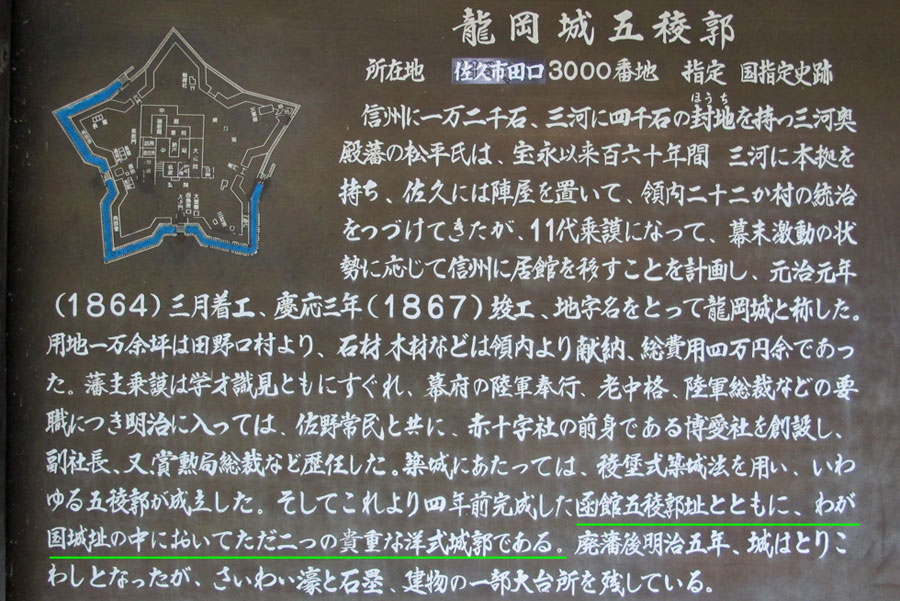 龍岡城五稜郭
所在地 佐久市田口3000番地 指定 国指定史跡
信州に一万二千石、三河に四千石の封地を持つ三河奥
ほうち
殿藩の松平氏は、宝永以来百六十年間 三河に本拠を
持ち、佐久には陣屋を置いて、領内二十二か村の統治
をつづけてきたが、11代乗謨になって、幕末激動の状
勢に応じて信州に居館を移すことを計画し、元治元年
(1864)三月着工、慶応三年(1867)竣工、地字名をとって龍岡城と称した。
用地一万余坪は田野口村より、石材木材などは領内より献納、総費用四万円余であっ
た。藩主乗謨は学才識見ともにすぐれ、幕府の陸軍奉行、老中格、陸軍総裁などの要
職につき明治に入っては、佐野常民と共に、赤十字社の前身である博愛社を創設し、
副社長、又賞勲局総裁など歴任した。築城にあたっては、稜堡式築城法を用い、いわ
ゆる五稜郭が成立した。そしてこれより四年前完成した函館五稜郭址とともに、わが
国城址の中においてただ二つの貴重な洋式城郭である。廃藩後明治五年、城はとりこ
わしとなったが、さいわい濠と石塁、建物の一部大台所を残している。